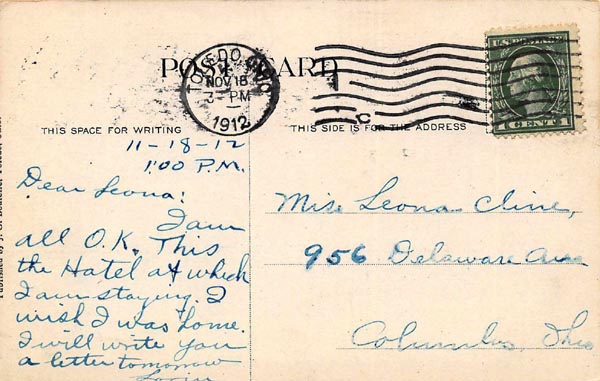 POST CARD
TOLEDO, OHIO
NOV 18
3 - PM
1912
C
U.S. POSTAGE
1 CENT 1
THIS SPACE FOR WRITING
THIS SIDE IS FOR THE ADDRESS
11-18-12
1:00 P.M.
Dear Leona:
I am
all O.K. This
the Hotel at which
I am staying. I
wish I was home.
I will write you
a letter tomorrow
Miss Leona Cline,
956 Delaware Ave
Columbus, Ohio
Published by J.